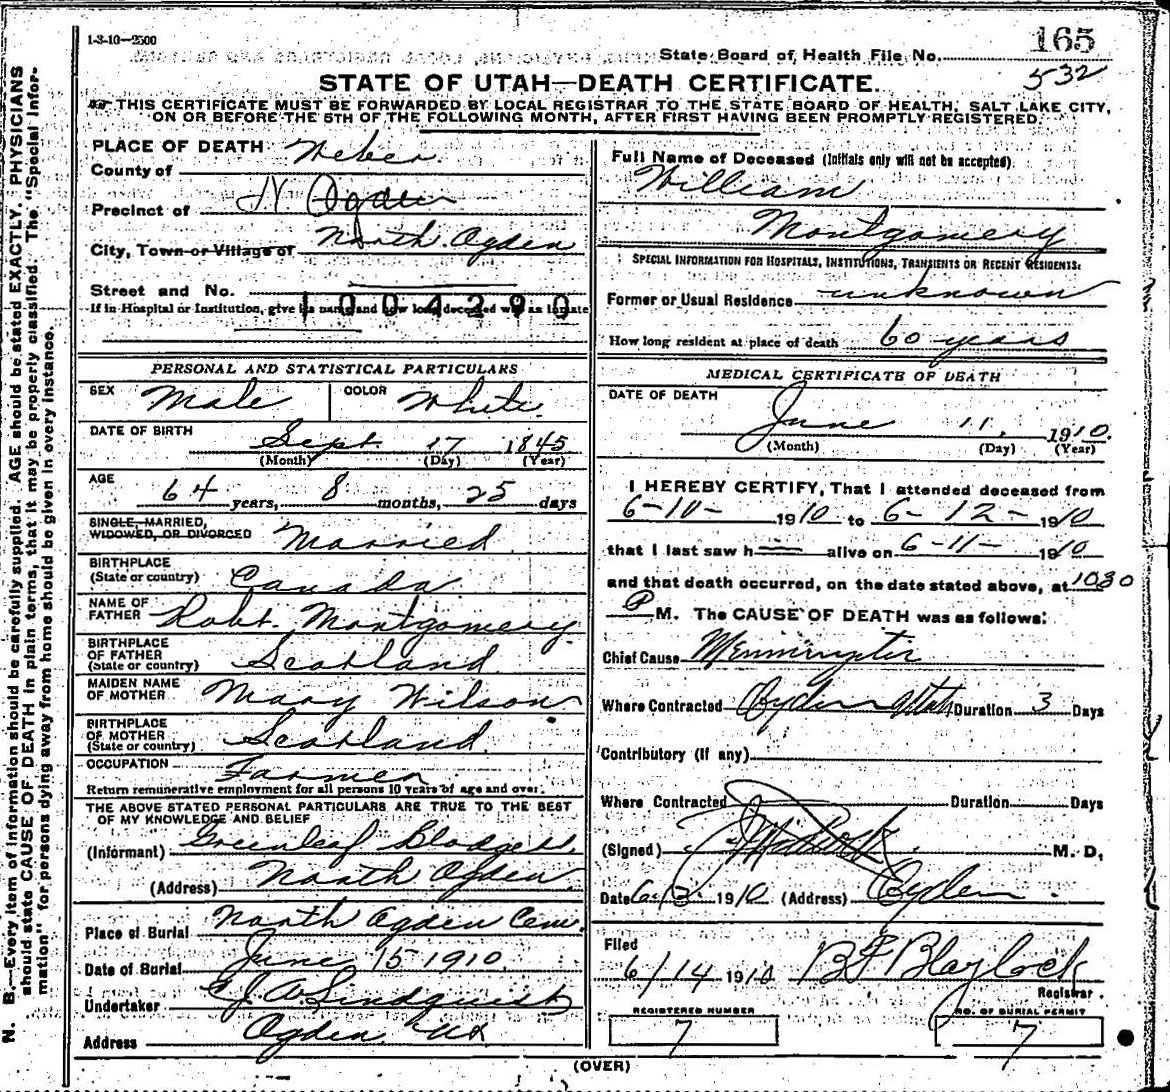 1-3-10—2500
State Board of Health File No. 165
532
STATE OF UTAH—DEATH CERTIFICATE.
THIS CERTIFICATE MUST BE FORWARDED BY LOCAL REGISTRAR TO THE STATE BOARD OF HEALTH, SALT LAKE CITY,
ON OR BEFORE THE 5TH OF THE FOLLOWING MONTH, AFTER FIRST HAVING BEEN PROMPTLY REGISTERED.
N. B.—Every item of information should be carefully supplied. AGE should be stated EXACTLY. PHYSICIANS
should state CAUSE OF DEATH in plain terms, that it may be properly classified. The "Special Infor-
mation" for persons dying away from home should be given in every instance.
PLACE OF DEATH
County of Weber
Precinct of N Ogden
City, Town or Village of North Ogden
Street and No.
1004290
If in Hospital or Institution, give its name and how long deceased was an inmate
PERSONAL AND STATISTICAL PARTICULARS
SEX Male COLOR White
DATE OF BIRTH Sept. 17 1845
(Month) (Day) (Year)
AGE 64 years, 8 months, 25 days
SINGLE, MARRIED,
WIDOWED, OR DIVORCED Married
BIRTHPLACE
(State or country) Canada
NAME OF
FATHER Robt. Montgomery
BIRTHPLACE
OF FATHER
(State or country) Scotland
MAIDEN NAME
OF MOTHER Mary Wilson
BIRTHPLACE
OF MOTHER
(State or country) Scotland
OCCUPATION Farmer
Return remunerative employment for all persons 10 years of age and over.
THE ABOVE STATED PERSONAL PARTICULARS ARE TRUE TO THE BEST
OF MY KNOWLEDGE AND BELIEF
(Informant) Greenleaf Blodgett
(Address) North Ogden
Place of Burial North Ogden Cem.
Date of Burial June 15 1910
Undertaker J. A. Lindquist
Address Ogden Ut
Full Name of Deceased (Initials only will not be accepted)
William
Montgomery
SPECIAL INFORMATION FOR HOSPITALS, INSTITUTIONS, TRANSIENTS OR RECENT RESIDENTS:
Former or Usual Residence unknown
How long resident at place of death 60 years
MEDICAL CERTIFICATE OF DEATH
DATE OF DEATH
June 11, 1910.
(Month) (Day) (Year)
I HEREBY CERTIFY, That I attended deceased from
6-10- 1910 to 6-12- 1910
that I last saw h alive on 6-11- 1910
and that death occurred, on the date stated above, at 1030
P M. The CAUSE OF DEATH was as follows:
Chief Cause
Where Contracted Ogden Utah Duration 3 Days
Contributory (If any)
Where Contracted Duration Days
(Signed) M. D.
Date 1910 (Address) Ogden
Filed
6/14 1910 BF Blaylock
Registrar.
REGISTERED NUMBER
7
NO. OF BURIAL PERMIT
7
(OVER)